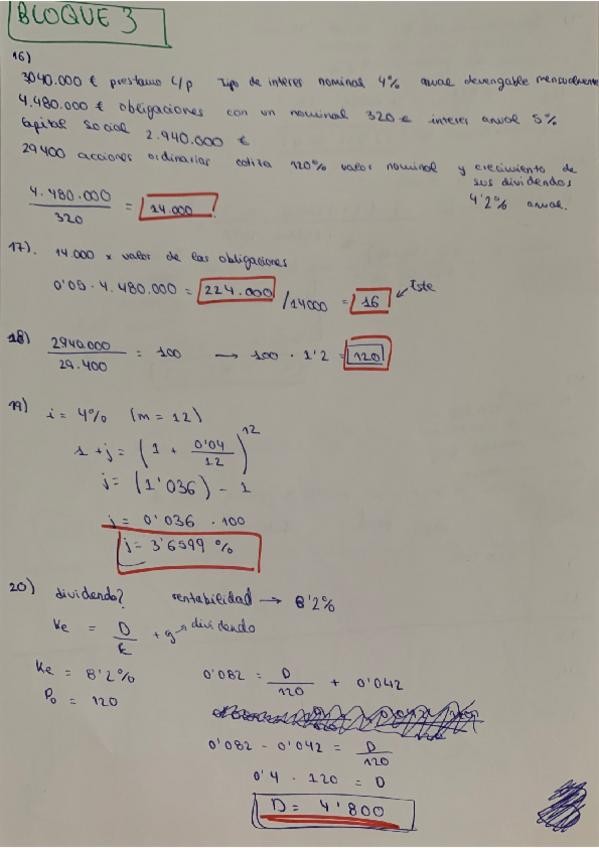 BLOQUE 3
16)
3040.000 € prestamo L/p Tipo de interes nominal 4% anual devengable mensualmente
4.480.000 € obligaciones con un nominal 320 € interes anual 5%
Capital Social 2.940.000 €
29400 acciones ordinarias cotiza 120% valor nominal y crecimiento de
sus dividendos
4'2% anual.
4.480.000 / 320 = 14.000
17). 14.000 x valor de las obligaciones
0'05 · 4.480.000 = 224.000 /14000 = 16 Este
18) 2940.000 / 29.400 = 100 → 100 · 1'2 = 120
19) i = 4% (m = 12)
1 + j = (1 + 0'04 / 12)^12
j = (1'036) - 1
j = 0'036 · 100
j = 3'6599 %
20) dividendo? rentabilidad → 8'2%
Ke = D / + g → dividendo
Ke = 8'2% 0'082 = D / 120 + 0'042
P0 = 120
0'082 - 0'042 = D / 120
0'4 · 120 = D
D = 4'800